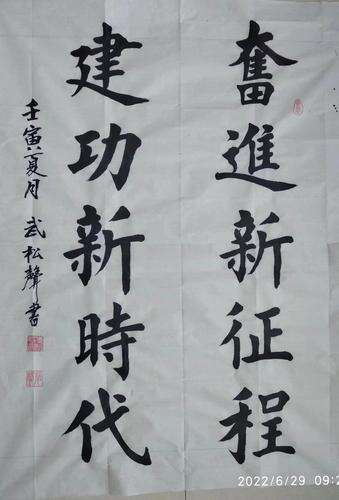 奮進新征程
建功新時代
壬寅夏月 武松聲書
2022/6/29 09:2